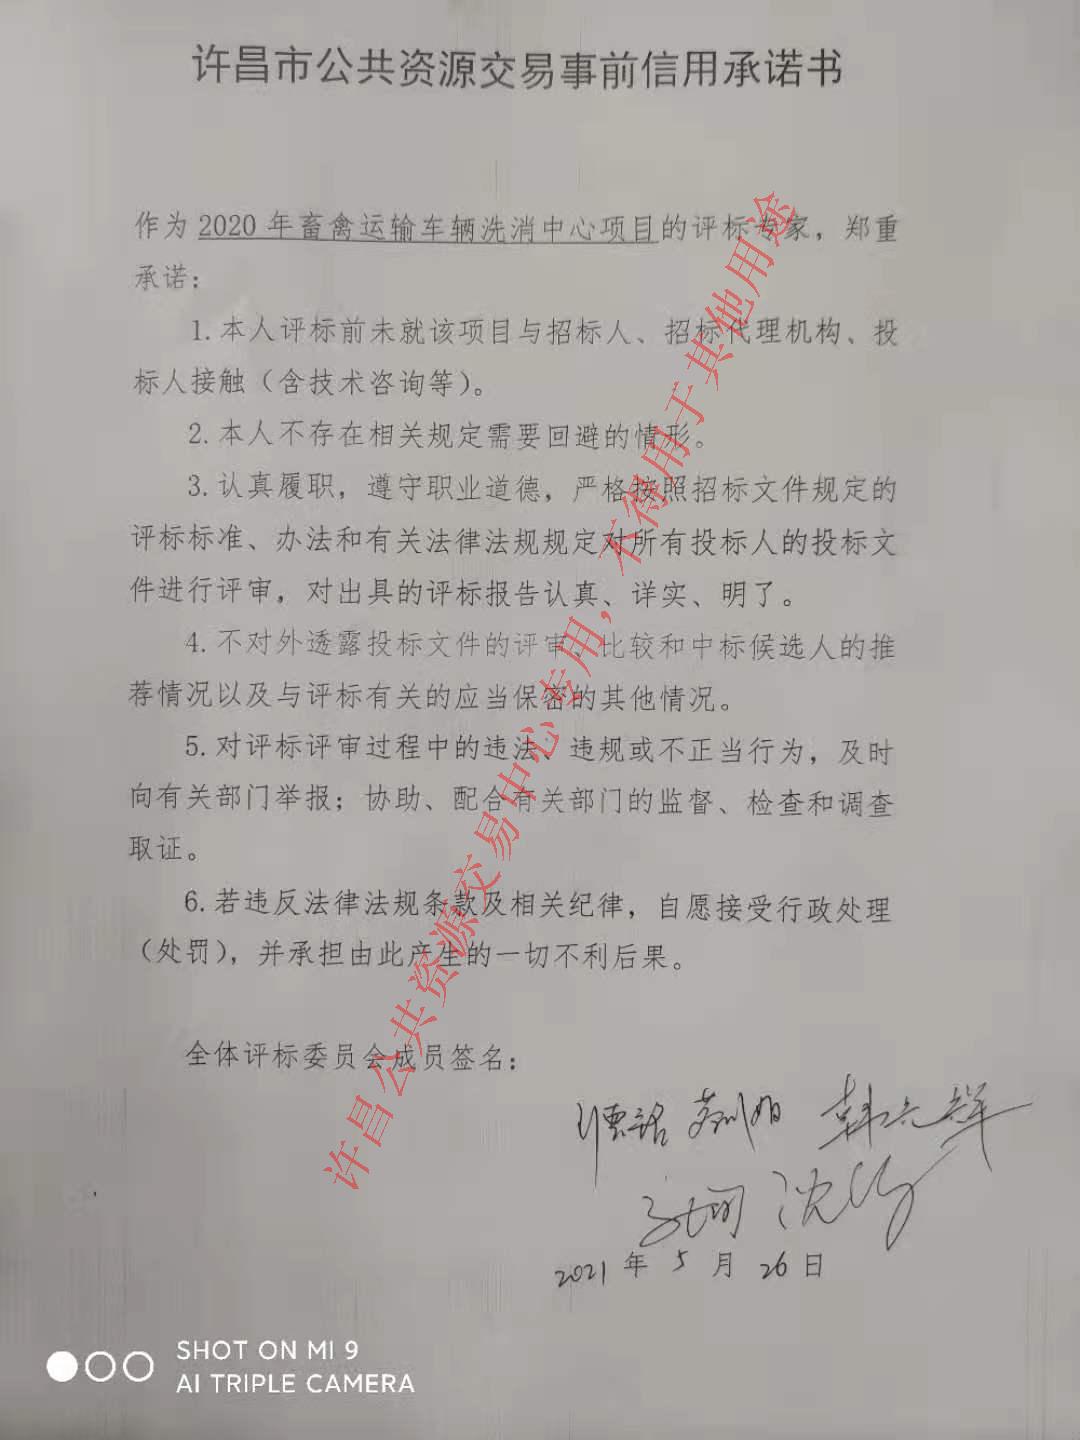 许昌市公共资源交易事前信用承诺书
作为 2020 年畜禽运输车辆洗消中心项目的评标专家，郑重
承诺：
1.本人评标前未就该项目与招标人、招标代理机构、投
标人接触（含技术咨询等）。
2.本人不存在相关规定需要回避的情形。
3.认真履职，遵守职业道德，严格按照招标文件规定的
评标标准、办法和有关法律法规规定对所有投标人的投标文
件进行评审，对出具的评标报告认真、详实、明了。
4.不对外透露投标文件的评审、比较和中标候选人的推
荐情况以及与评标有关的应当保密的其他情况。
5.对评标评审过程中的违法、违规或不正当行为，及时
向有关部门举报；协助、配合有关部门的监督、检查和调查
取证。
6.若违反法律法规条款及相关纪律，自愿接受行政处理
（处罚），并承担由此产生的一切不利后果。
全体评标委员会成员签名：
2021 年 5 月 26 日
许昌公共资源交易中心专用，不得用于其他用途
SHOT ON MI 9
AI TRIPLE CAMERA